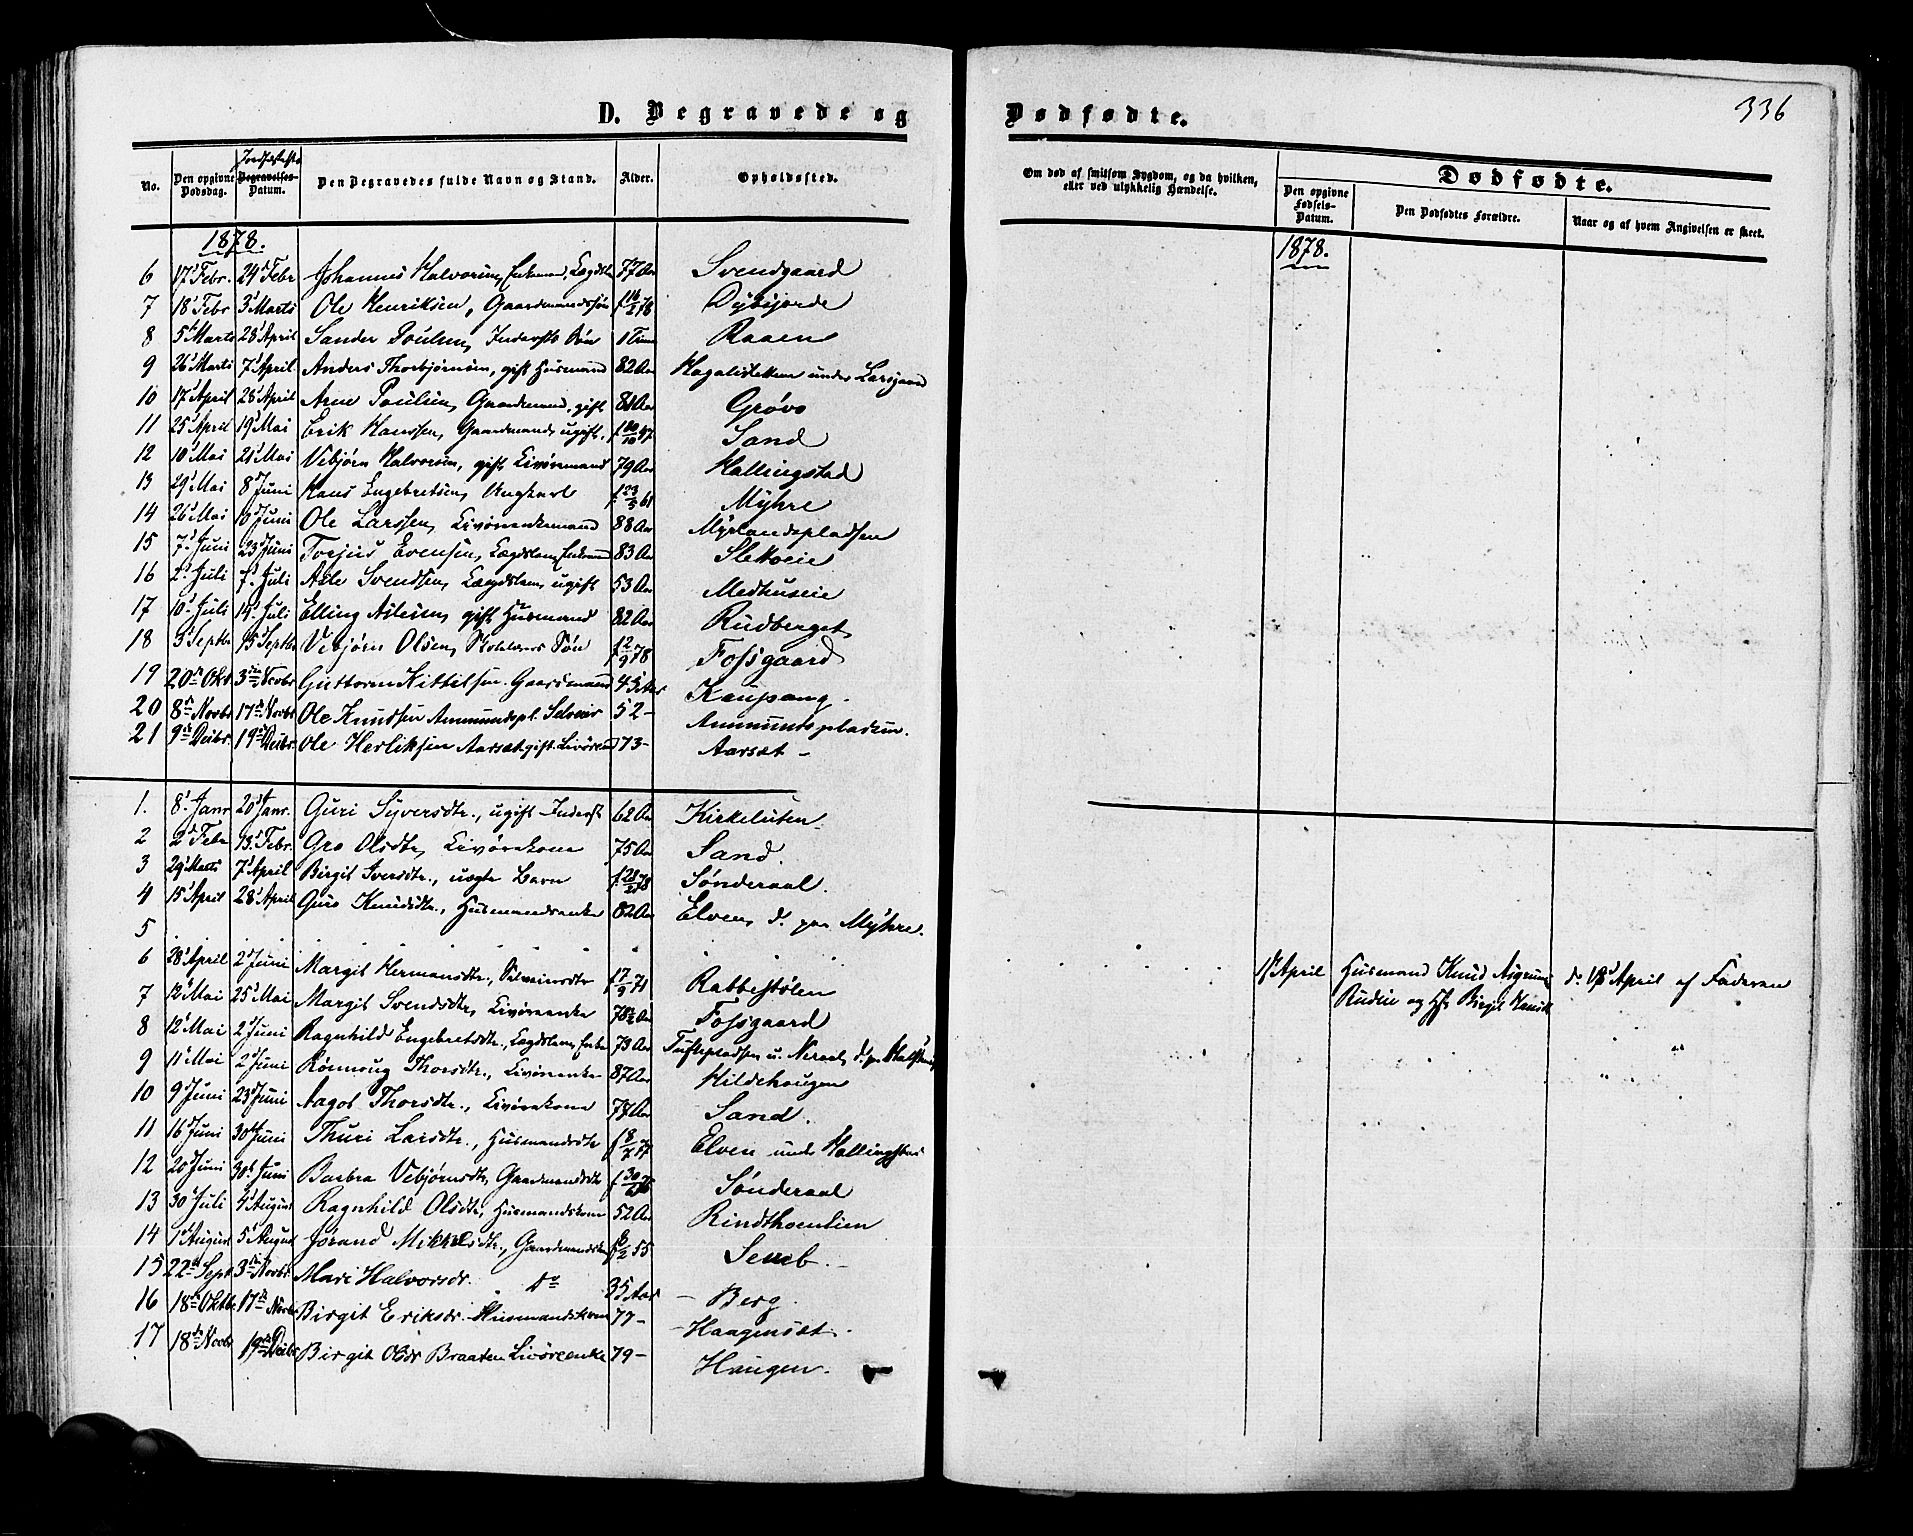 D. Begravede og
No.
Den opgivne Dødsdag.
Jordfæstelses Begravelses-Datum.
Den Begravedes fulde Navn og Stand.
Alder.
Opholdssted.
1878.
6 17d Febr. 24d Febr Johannes Halvorsen, Enkemd, Lægdslem 77 Aar Svendgaard
7 18d Febr 3d Marts Ole Henriksen, Gaardmandssøn f 16/2 78 Dybsjorde
8 5t Marts 28d April Sander Poulsen, Indersts Søn 1 Time Raaen
9 26d Marts 7d April Anders Thorbjørnsen, gift Husmand 82 Aar under Larsgaard
10 17d April 28d April Arne Poulsen, Gaardmand, gift 81 Aar Grøvo
11 25d April 19d Mai Erik Hanssen, Gaardmands, ugift. Sand
12 10d Mai 21d Mai Vebjørn Halvorsen, gift Livøremand 79 Aar Hallingstad
13 29d Mai 8d Juni Hans Engebretsen, Ungkarl f 23/5 61 Myhre
14 26d Mai 10d Juni Ole Larssen, Livøreenkemand 88 Aar Myrlandspladsen
15 7d Juni 23d Juni Torjus Evensen, Lægdslem, Enkemd 83 Aar Slettoeie
16 2d Juli 7d Juli Svendsen, Lægdslem, ugift 53 Aar Medhuseie
17 10d Juli 14d Juli Elling Aslesen, gift Husmand 82 Aar Rudberget
18 3d Septbr 15d Septbr Vebjørn Olsen, Søn f 2/9 78 Fossgaard
19 20de Okt 3die Novbr Guttorm Kittilsen Gaardmand 45 Aar Kaupang.
20 8de Novbr 17de Novbr Ole Knudsen Ammundspl. Selveier 52 - Ammundspladsen.
21 9de Decbr 19de Decbr Ole Herliksen Aarsæt gift Livøremd 73 - Aarsæt -
1. 8d Janr 20d Janr. Guri Syversdtr., ugift Inderst 62 Aar Kirkeluten
2 2d Febr 13d Febr. Gro Olsdtr, Livørekone 75 Aar Sand.
3 29d Marts 7d April Birgit Iversdtr., uægte Barn f 28/2 78 Sønderaal.
4 15d April 28d April Guro Knudsdtr., Husmandsenke 82 Aar Elven, d. paa Myhre.
5
6 28d April 2d Juni Margit Hermansdtr., Selveiersdtr f 17/9 71 Rabbestølen
7 12d Mai 25d Mai Margit Svendsdtr., Livøreenke 78½ Aar Fossgaard
8 12d Mai 2d Juni Ragnhild Engebretsdtr., Lægdslem, Enke 73 Aar Tuftepladsen u. Neraal,
9 11d Mai 2d Juni Rønnoug Thorsdtr., Livøreenke 87 Aar Hildehougen
10 9d Juni 23d Juni Aagot Thorsdtr., Livørekone 78 Aar Sand.
11 16d Juni 30d Juni Thuri Larsdtr., Husmandsdtr f 8/7 77 Elven under Hallingstad
12 20d Juni 30d Juni Barbra Vebjørnsdtr, Gaardmandsdtr Sønderaal
13 30d Juli 4d August Ragnhild Olsdtr, Husmandskone 52 Aar Rindthoenlien
14 1d August 5d August Jørand Mikkelsdtr., Gaardmandskone Semb. -
15 22de Sept 3die Novbr Mari Halvorsdr. do 35 Aar - Berg.
16 18de Oktbr 17de Novbr Birgit Eriksdr. Husmandskone 77 - - Haagensæt.
17 18de Novbr 19de Decbr Birgit Olsdr Braaten Livøreenke 79 - Haugen.
Dødfødte.
336
Om død af smitsom Sygdom, og da hvilken, eller ved ulykkelig Hændelse.
Dødfødte.
Den opgivne Fødsels-Datum.
Den Dødfødtes Forældre.
Naar og af hvem Angivelsen er skeet.
1878.
April Husmand Knud d. April af Faderen
og Hst. Birgit